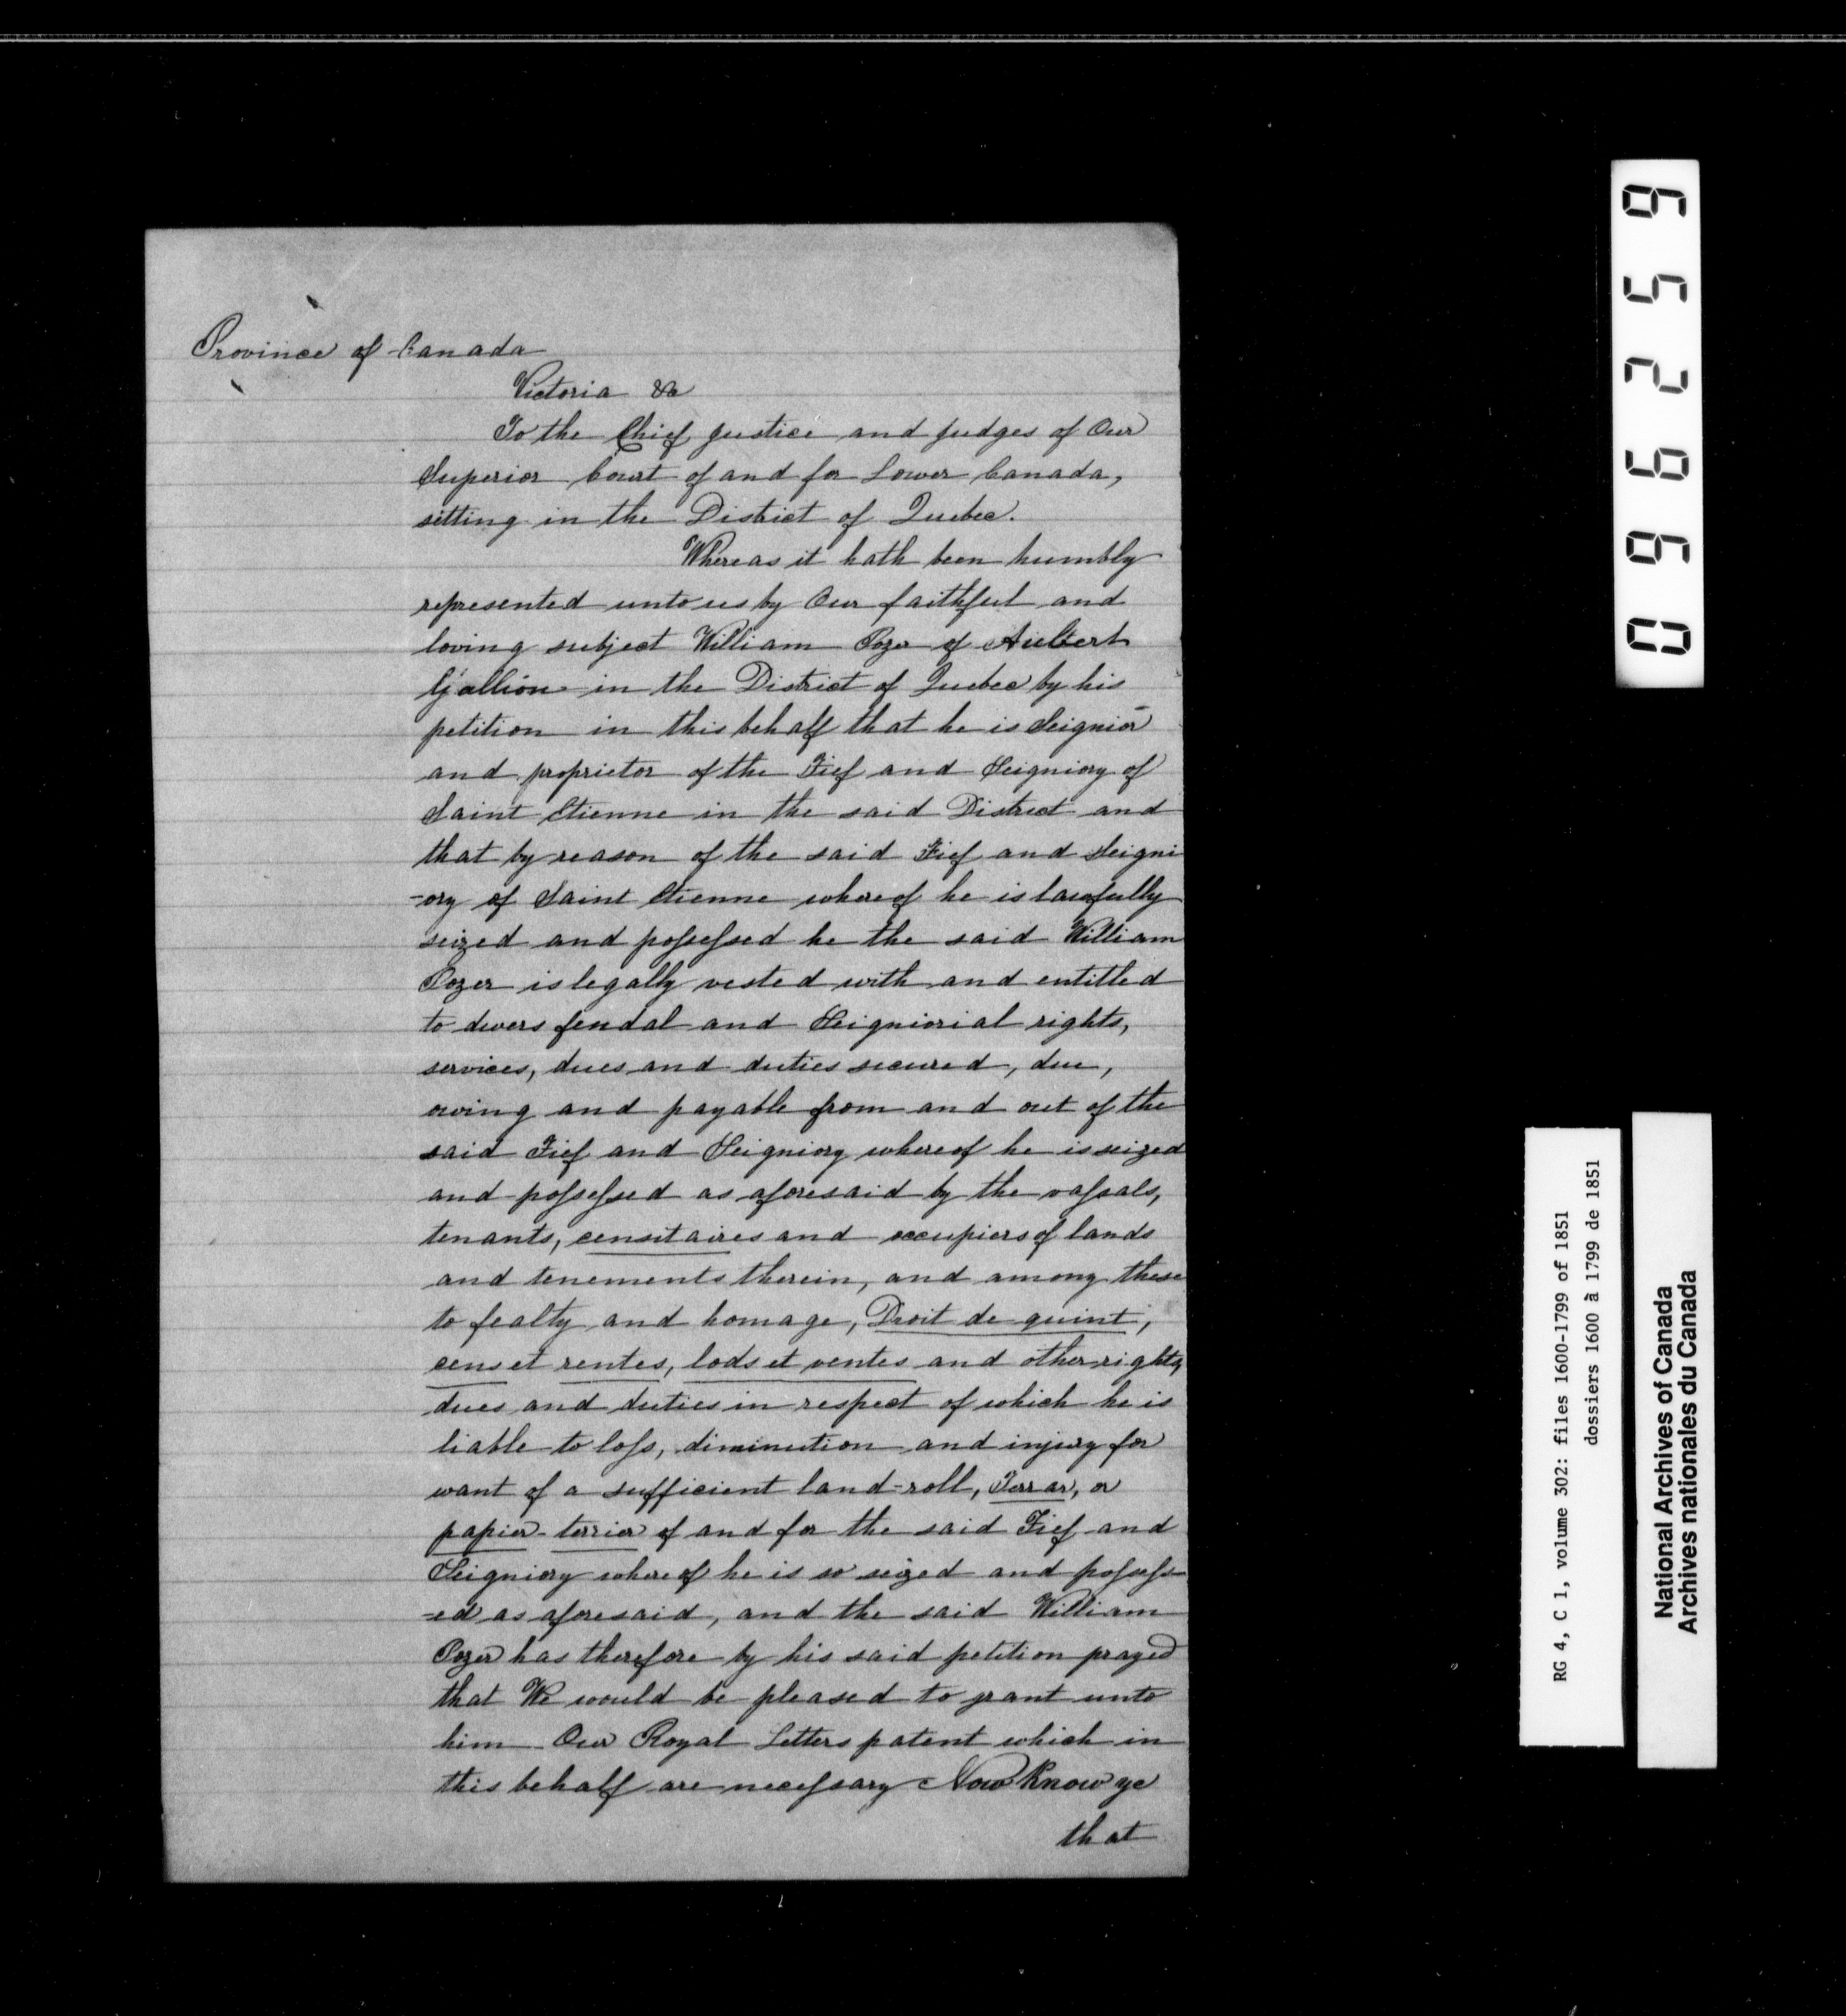 Province of Canada
Victoria &c
To the Chief Justice and Judges of Our
Superior Court of and for Lower Canada,
sitting in the District of Quebec.
Whereas it hath been humbly
represented unto us by Our faithful and
loving subject William Pozer of Aubert
Gallion in the District of Quebec by his
petition in this behalf that he is Seignior
and proprietor of the Fief and Seigniory of
Saint Etienne in the said District and
that by reason of the said Fief and Seigni
-ory of Saint Etienne whereof he is lawfully
seized and possessed he the said William
Pozer is legally vested with and entitled
to divers feudal and Seigniorial rights,
services, dues and duties secured, due,
owing and payable from and out of the
said Fief and Seigniory whereof he is seized
and possessed as aforesaid by the vassals,
tenants, censitaires and occupiers of lands
and tenements therein, and among these
to fealty and homage, Droit de quint,
cens et rentes, lods et ventes and other rights,
dues and duties in respect of which he is
liable to loss, diminution and injury for
want of a sufficient land-roll, Terrar, or
papier-terrier of and for the said Fief and
Seigniory whereof he is so seized and possess-
-ed as aforesaid, and the said William
Pozer has therefore by his said petition prayed
that We would be pleased to grant unto
him Our Royal Letters patent which in
this behalf are necessary Now Know ye
that
096259
RG 4, C 1, volume 302: files 1600-1799 of 1851
dossiers 1600 à 1799 de 1851
National Archives of Canada
Archives nationales du Canada